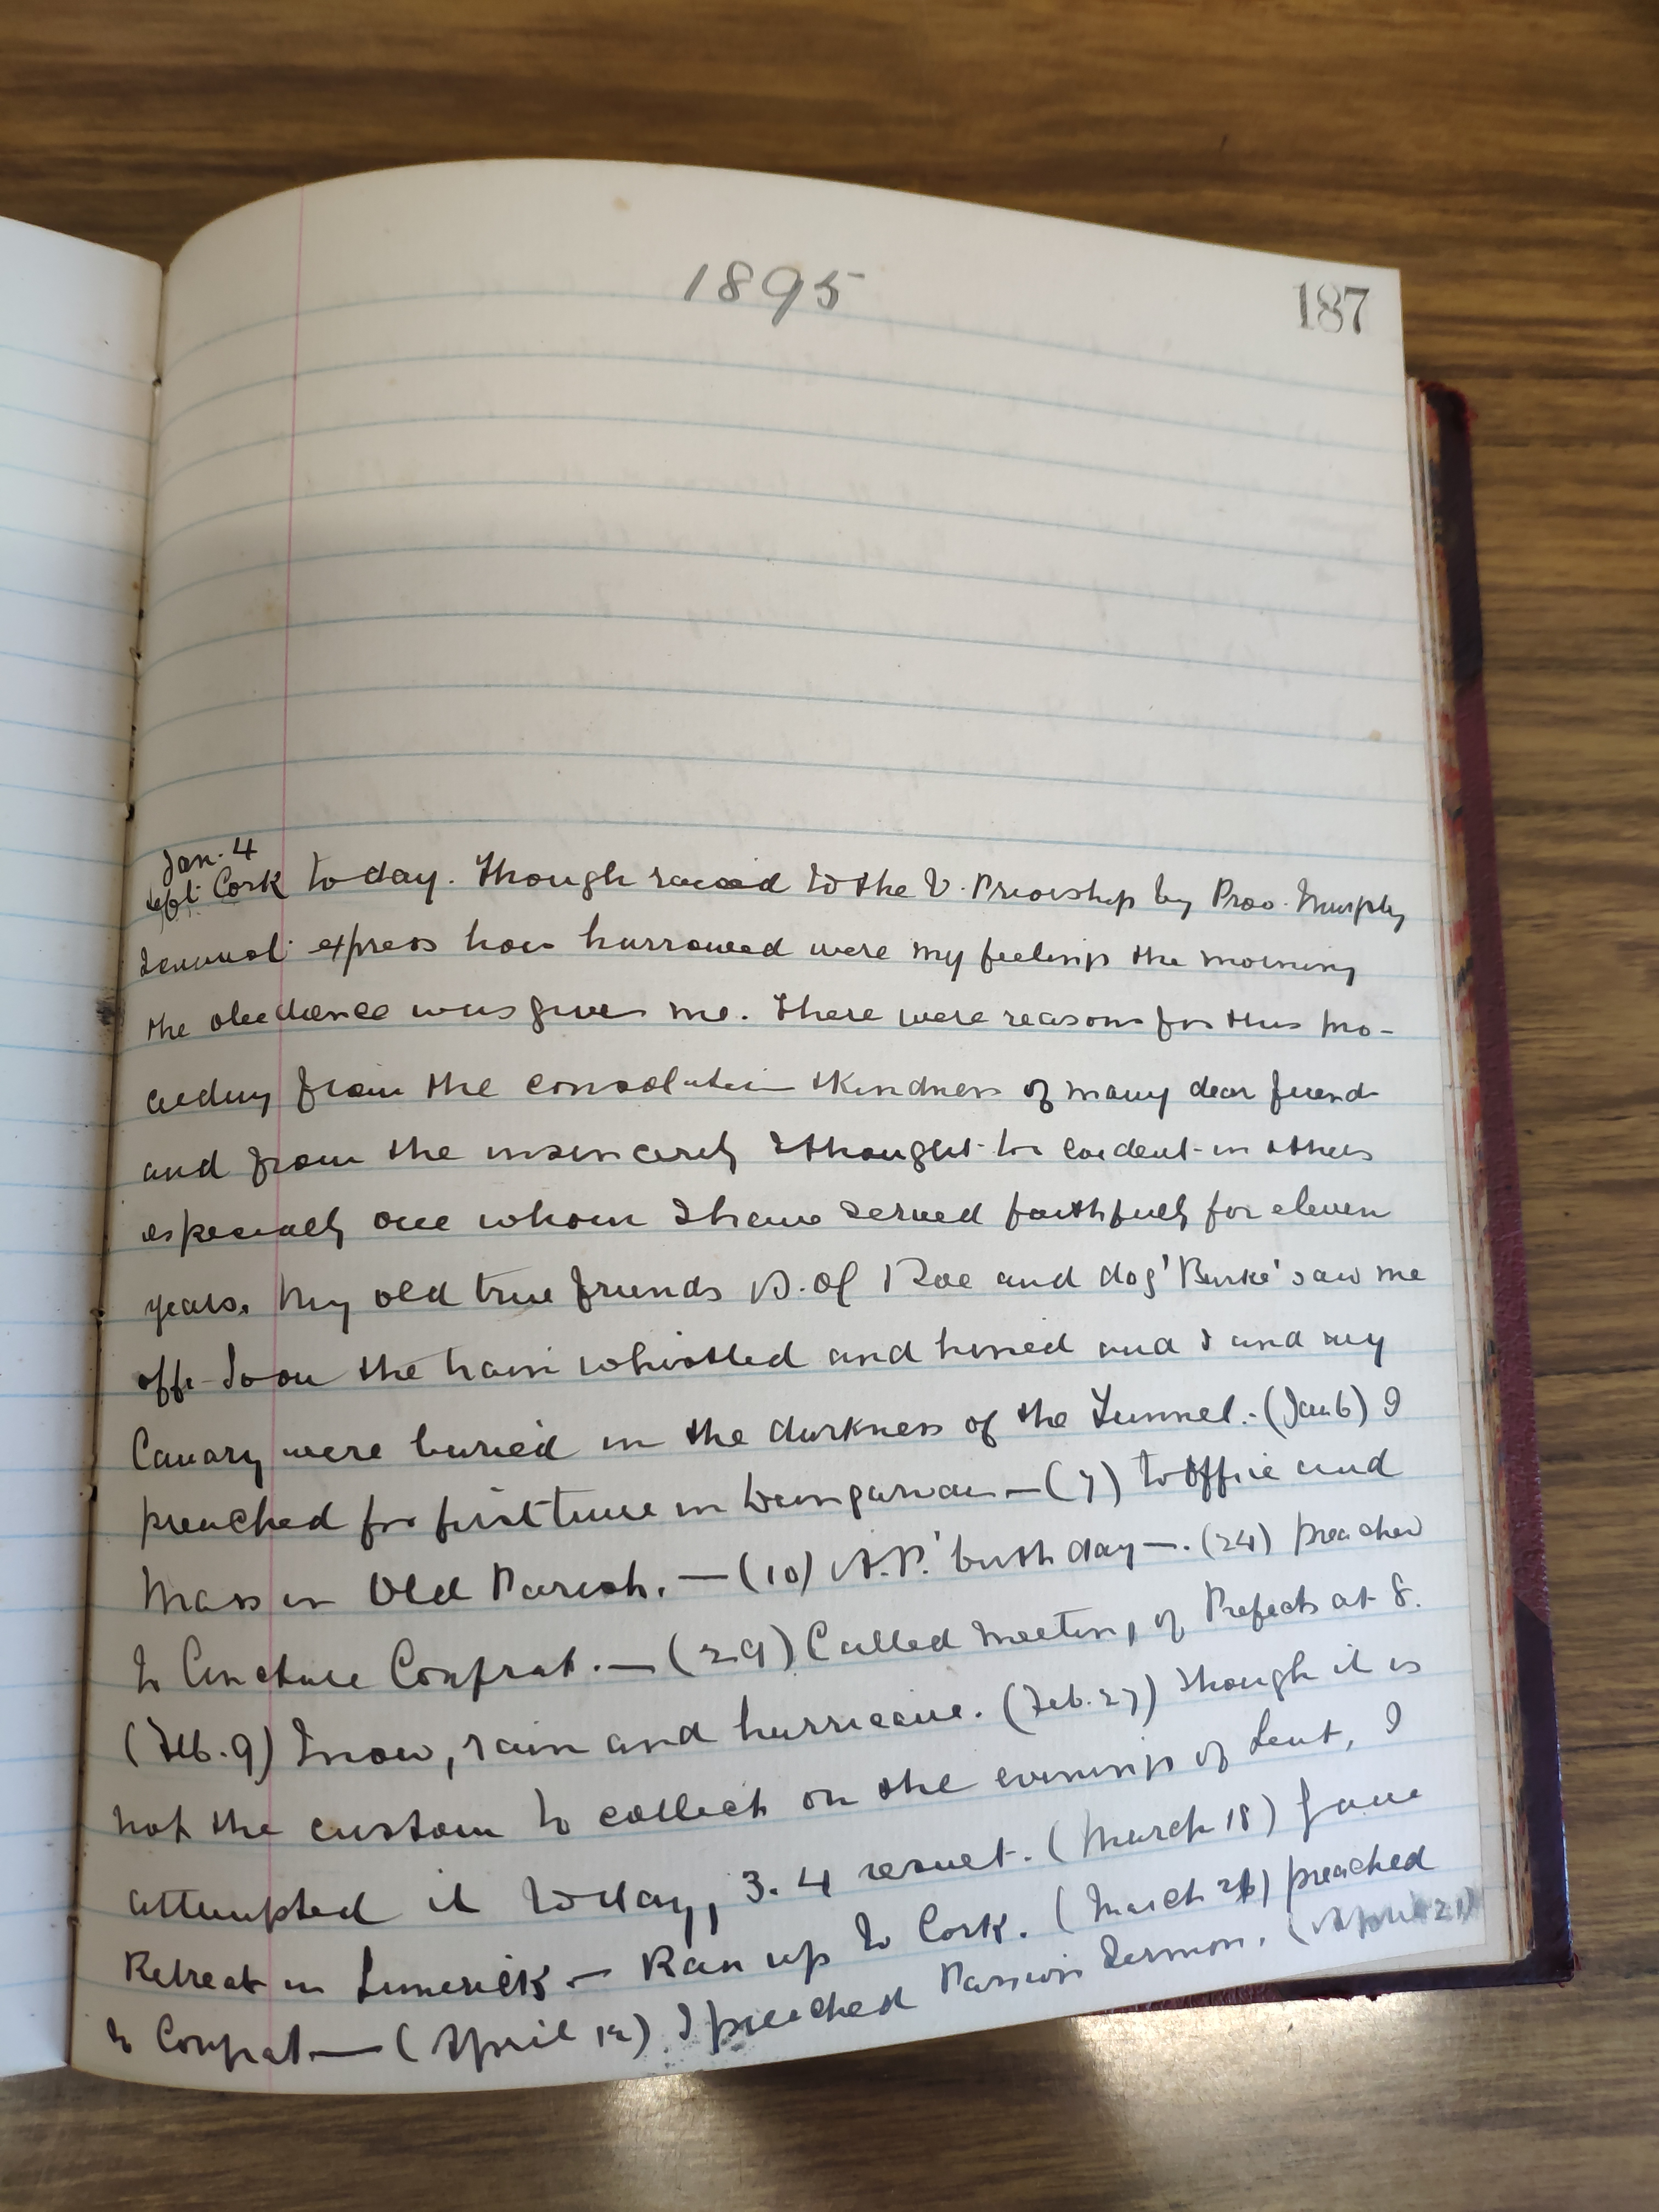 1895
187
Jan. 4
Left Cork to day. Though raised to the V. Priorship by Prov. Murphy
I cannot express how harrowed were my feelings the morning
the obedience was given me. There were reasons for this pro-
ceeding from the consolation & kindness of many dear friends
and from the insincerity I thought to evident in others
especially one whom I have served faithfully for eleven
years. My old true friends D. of Roe and dog 'Burke' saw me
off. Soon the train whistled and and I and my
Canary were buried in the darkness of the Tunnel. - (Jan 6) I
preached for first time in Dungarvan — (7) to Office and
Mass in Old Parish. — (10) A.P.' birth day —. (24) preached
to Cincture Confrat. — (29) Called meeting of Prefects at 8.
(Feb. 9) Snow, rain and hurricane. (Feb. 27) Though it is
not the custom to collect on the evenings of Lent, I
attempted it today, 3. 4 result. (March 18) Gave
Retreat in Limerick — Ran up to Cork. (March 26) preached
to Confrat — (April 12) I preached Passion Sermon. (April 21)